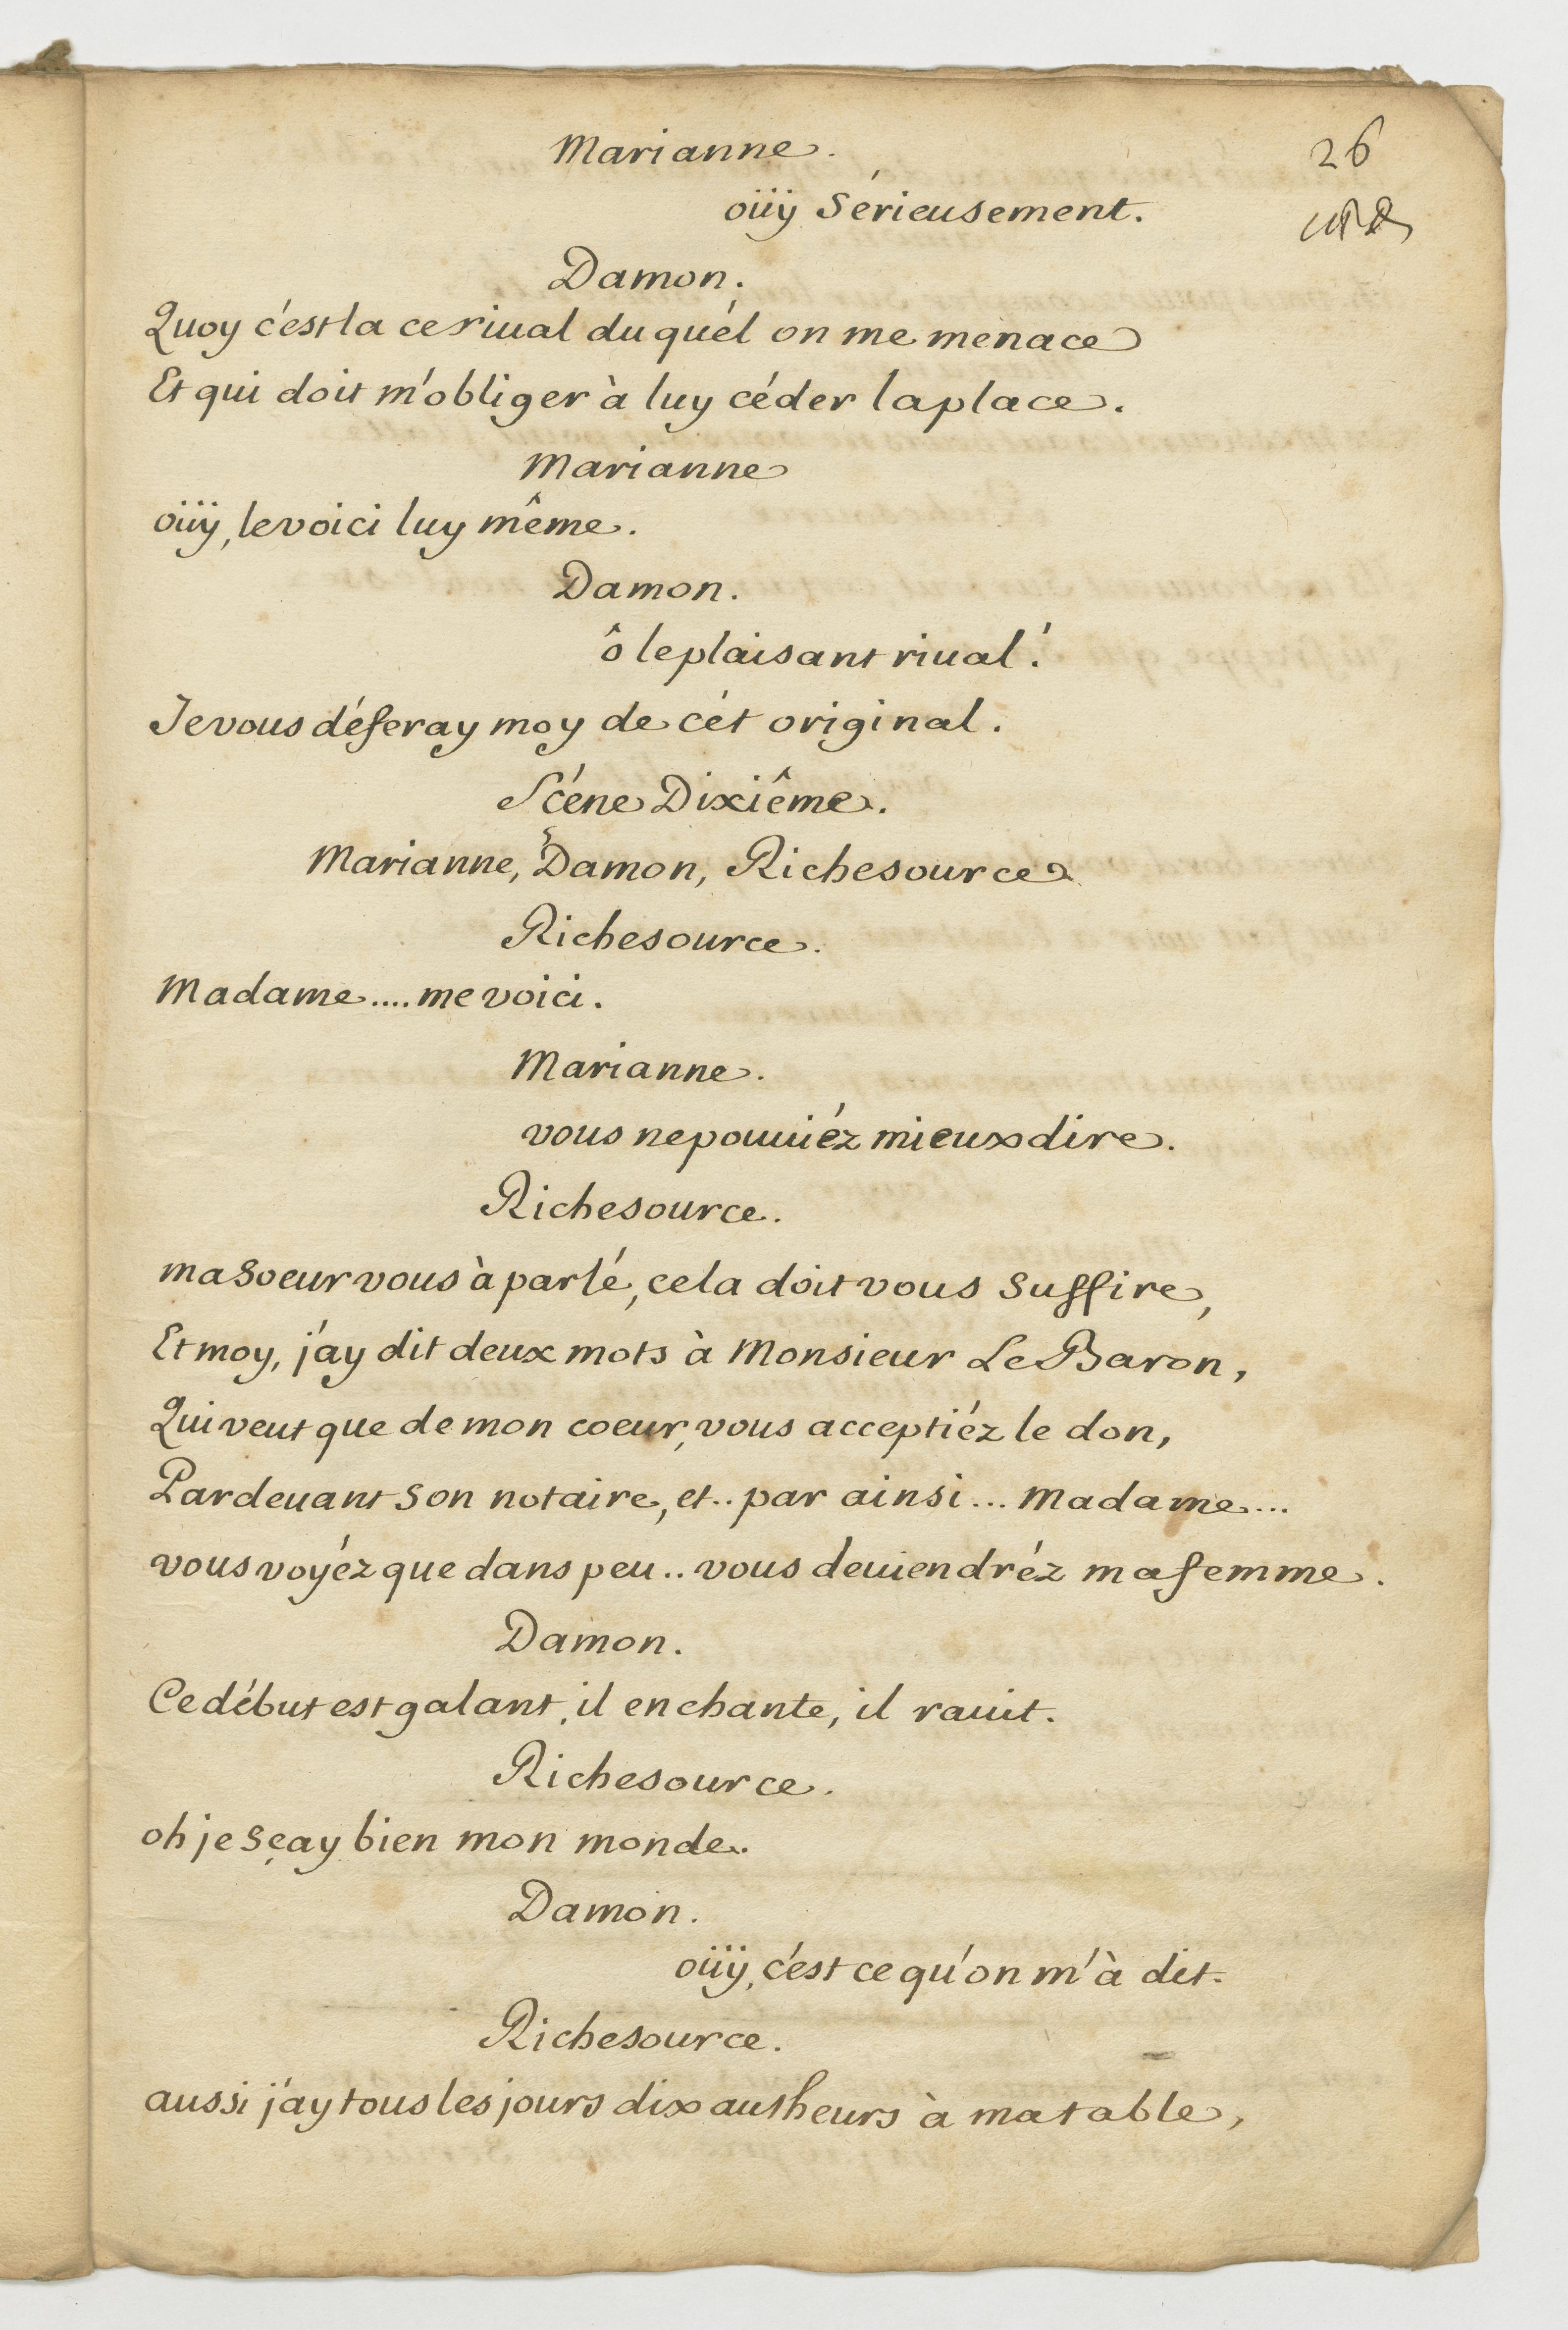 Marianne.
26
oüÿ Sérieusement.
Damon.
Quoy c'est la ce riual du quél on me menace
Et qui doit m'obliger à luy céder la place.
Marianne
oüÿ, le voici luy même.
Damon.
ô le plaisant riual!
Je vous déferay moy de cét original.
Scéne Dixiême.
Marianne, Damon, Richesource
Richesource.
Madame.... me voici.
Marianne.
vous ne pouuiéz mieux dire.
Richesource.
ma Soeur vous à parlé, cela doit vous Suffire,
Et moy, j'ay dit deux mots à Monsieur Le Baron,
Qui veut que de mon coeur, vous acceptiéz le don,
Pardeuant Son notaire, et.. par ainsi... Madame...
vous voyéz que dans peu.. vous deuiendréz ma femme.
Damon.
Ce début est galant, il enchante, il rauit.
Richesource.
oh je Sçay bien mon monde.
Damon.
oüÿ, c'est ce qu'on m'à dit.
Richesource.
aussi j'ay tous les jours dix autheurs à ma table,